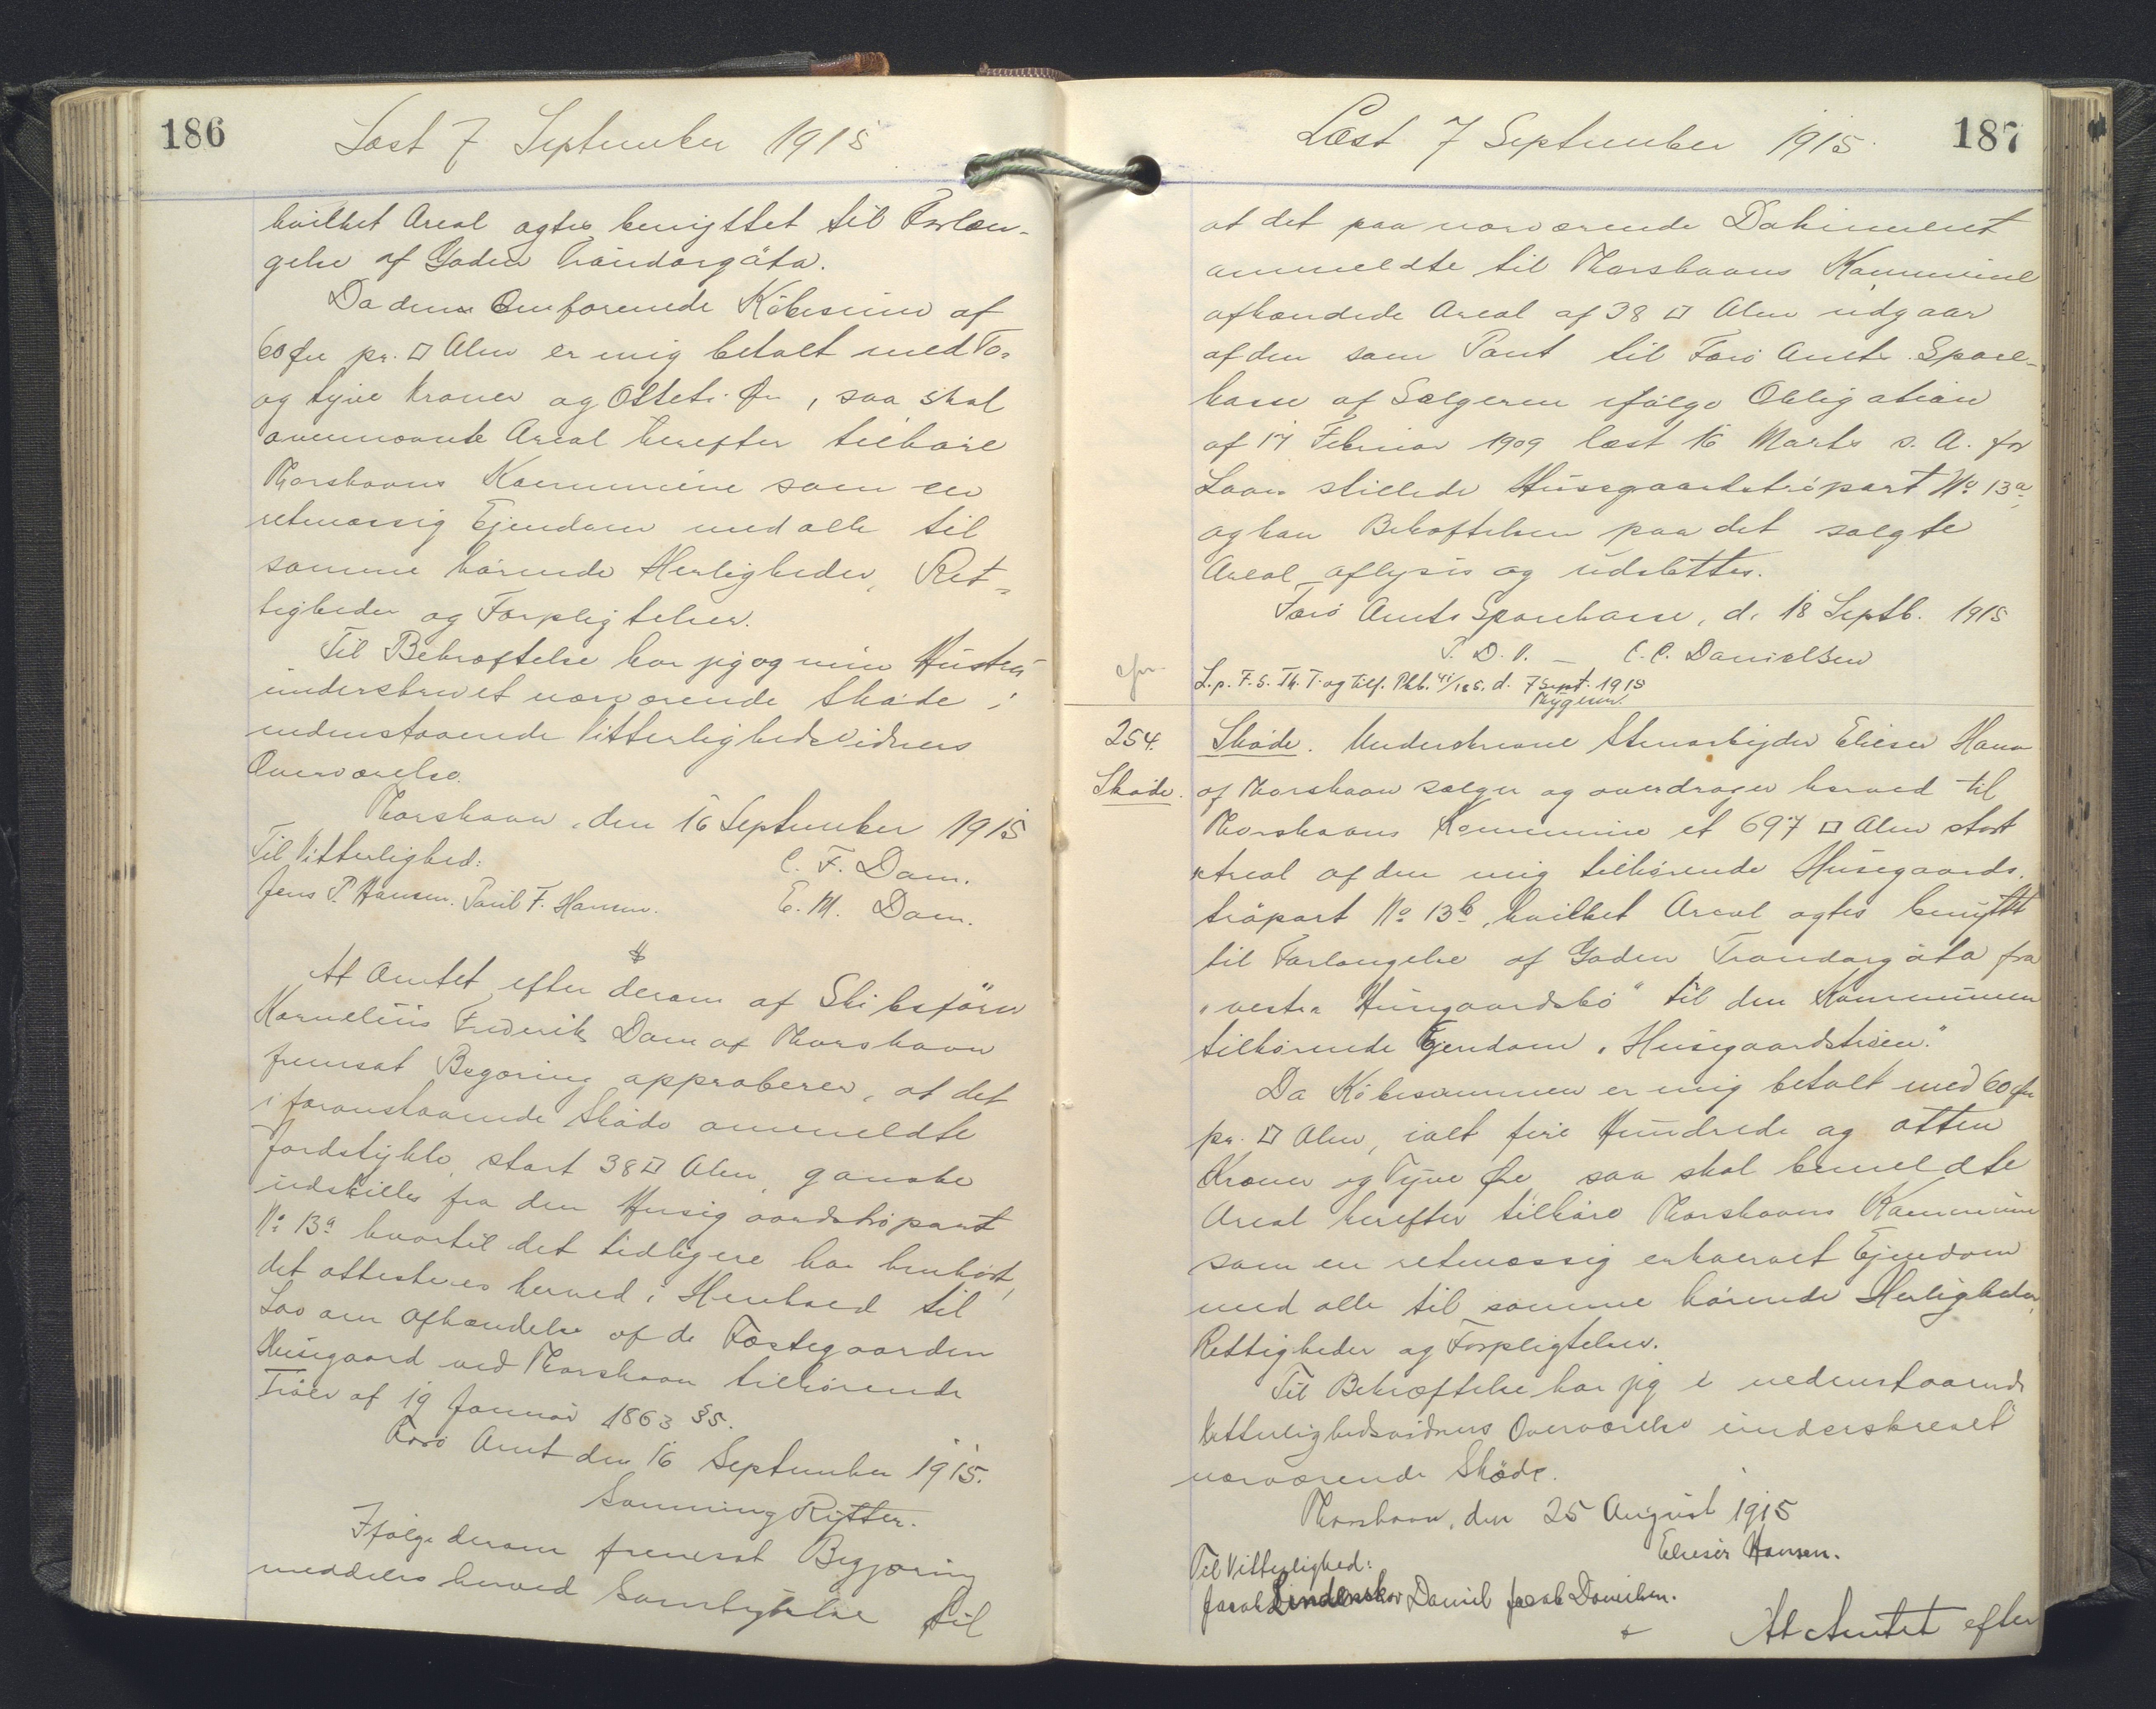 186
Læst 7 September 1915
hvilket Areal agtes benyttet til Forlæn-
gelse af Gaden Tróndargöta.
Da den Omforenede Købesum af
60 Øre pr. □ Alen er mig betalt med To-
og tyve Kroner og Otteti Øre, saa skal
ovennævnte Areal herefter tilhøre
Thorshavns Kommune som en
retmæssig Ejendom med alle til
samme hørende Herligheder, Ret-
tigheder og Forpligtelser.
Til Bekræftelse har jeg og min Hustru
underskrevet nærværende Skøde i
nedenstaaende Vitterlighedsvidners
Overværelse.
Thorshavn, den 16 September 1915
Til Vitterlighed:
C. F. Dam.
Jens P. Hansen. Paul F. Hansen.
E. M. Dam.
At Amtet efter derom af Skibsfører
Kornelius Frederik Dam af Thorshavn
fremsat Begæring approberer, at det
i foranstaaende Skøde ommeldte
Jordstykke, stort 38 □ Alen, ganske
udskilles fra den Husigaardstrøpart
No 13a hvortil det tidligere har henhørt,
det attesteres herved i Henhold til
Lov om Afhændelse af de Fæstegaarden
Husigaard ved Thorshavn tilhørende
Trøer af 19 Januar 1863 § 5.
Færø Amt den 16 September 1915.
Sønning Rytter.
Ifølge derom fremsat Begjæring
meddeles herved Samtykke til
187
Læst 7 September 1915.
at det paa nærværende Dokument
ommeldte til Thorshavns Kommune
afhændede Areal af 38 □ Alen udgaar
af den som Pant til Færø Amts Spare-
kasse af Sælgeren ifølge Obligation
af 17 Februar 1909 læst 16 Marts s. A. for
Laan stillede Husegaardstrøpart No 13a
og kan Behæftelsen paa det solgte
Areal aflyses og udslettes.
Færø Amts Sparekasse, d. 18 Septb. 1915
P. D. V. — C. C. Danielsen
L. p. F. S. Th. T. og tilf. Phb. 41/185. d. 7 Sept. 1915
254.
Skøde.
Skøde. Underskrevne Stenarbejder Elieser Hansen
af Thorshavn sælger og overdrager herved til
Thorshavns Kommune et 697 □ Alen stort
Areal af den mig tilhørende Husegaards-
trøpart No 13b, hvilket Areal agtes benyttet
til Forlængelse af Gaden Tróndargöta fra
"vestra Húsgaardsbø" til den Kommunen
tilhørende Ejendom "Husegaardstrøen".
Da Købesummen er mig betalt med 60 Øre
pr. □ Alen, ialt fire Hundrede og atten
Kroner og Tyve Øre, saa skal bemeldte
Areal herefter tilhøre Thorshavns Kommune
som en retmæssig erhvervet Ejendom
med alle til samme hørende Herligheder,
Rettigheder og Forpligtelser.
Til Bekræftelse har jeg i nedenstaaende
Vitterlighedsvidners Overværelse underskrevet
nærværende Skøde.
Thorshavn, den 25 August 1915
Til Vitterlighed:
Eliesér Hansen.
Jacob Lindenskov Daniel Jacob Danielsen.
At Amtet efter